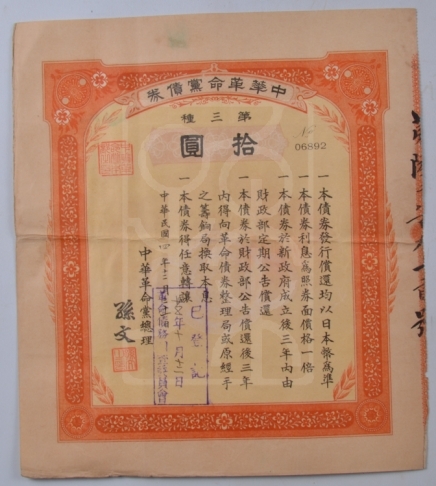 中華革命黨債券
第三種
拾圓
06892
一本債券發行償還均以日本幣為準
一本債券利息為照券面價格一倍
一本債券於新政府成立後三年內由
財政部定期公告償還
一本債券於財政部公告償還後三年
內得向革命債券整理局或原經手
之籌餉局換取本息
一本債券得任意轉讓
中華民國四年十二月
中華革命黨總理
孫文
已登記